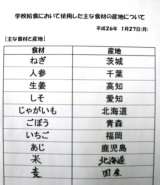 学校給食において使用した主な食材の産地について
平成26年 1月27日(月)
[主な食材と産地]
食材 産地
ねぎ 茨城
人参 千葉
生姜 高知
しそ 愛知
じゃがいも 北海道
ごぼう 青森
いちご 福岡
あじ 鹿児島
米 北海道
麦 国産